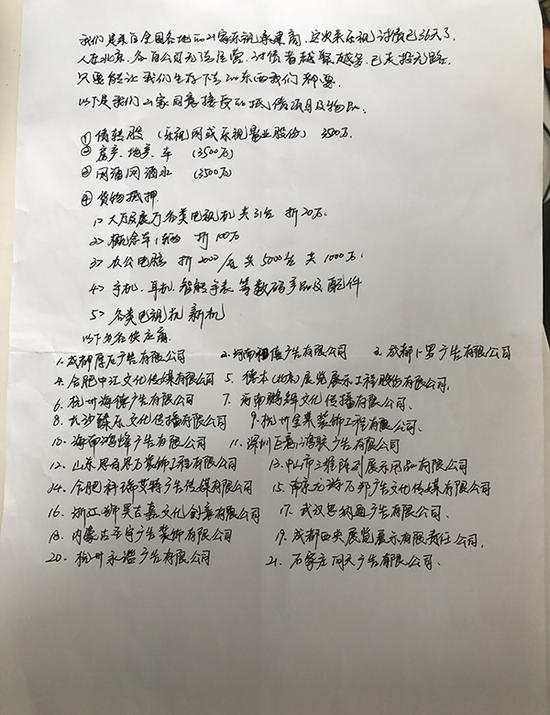 我们是来自全国各地的21家乐视承建商,这次来乐视讨债已36天了,
人在北京,各自公司无法经营,讨债者越聚越多,已走投无路,
只要能让我们生存下去的东西我们都要.
以下是我们21家同意接受的抵偿项目及物品.
① 债转股 (乐视网或乐视影业股份) 3500万.
② 房产、地产、车 (3500万)
③ 网酒网酒水 (3500万)
④ 货物抵押
1> 大厅及展厅各类电视机 共31台 折20万.
2> 概念车1辆 折100万
3> 办公电脑 折2000/台 共5000台 共1000万.
4> 手机、耳机、智能手表 等数码产品及配件
5> 各类电视机新机
以下为各供应商.
1. 成都 广告有限公司 2. 河南 广告有限公司 3. 成都卜罗广告有限公司
4. 合肥中江文化传媒有限公司 5. 德本(北京)展览展示工程股份有限公司.
6. 杭州海德广告有限公司 7. 河南鹏辉文化传播有限公司.
8. 长沙臻东文化传播有限公司 9. 杭州 装饰工程有限公司.
10. 海南鸿烽广告有限公司 11. 深圳 广告有限公司
12. 山东思自思万装饰工程有限公司 13. 中山市三维陈列展示用品有限公司
14. 合肥科瑞艾特广告传媒有限公司 15. 南京龙游万邦广告文化传媒有限公司
16. 浙江狮昊吉嘉文化创意有限公司 17. 武汉思纳通广告有限公司.
18. 内蒙古 广告装饰有限公司 19. 成都西央展览展示有限责任公司.
20. 杭州永谐广告有限公司 21. 石家庄问天广告有限公司.